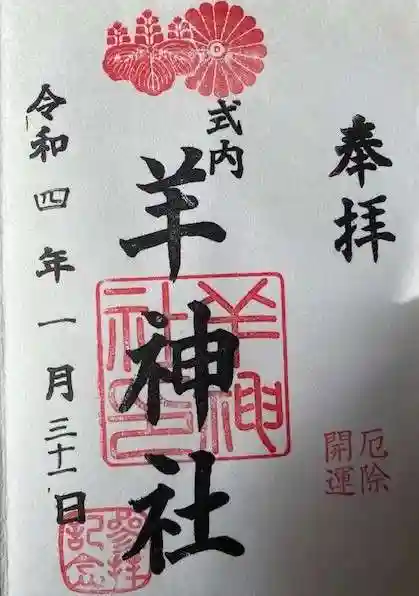 奉拝
厄除
開運
式内
羊神社
羊神社印
令和四年一月三十一日
参拝記念